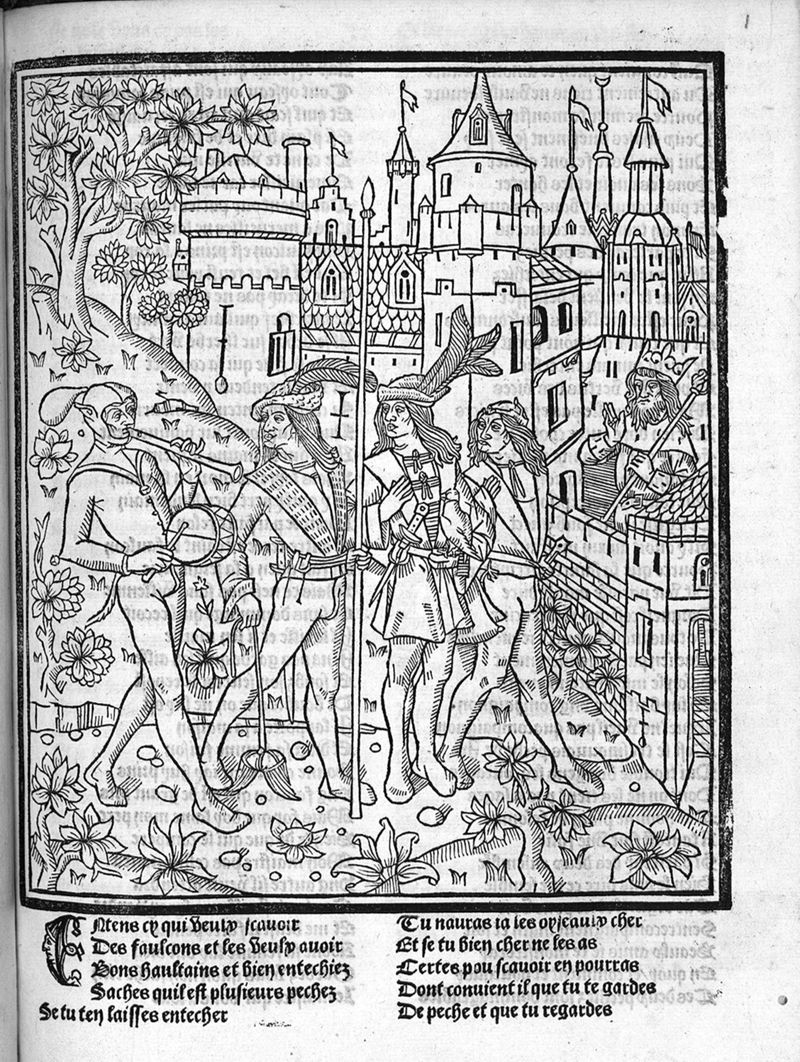 Entens cy qui veulx scavoir
Des faulcons et les veulx avoir
Bons haultains et bien entechiez
Saches quil est plusieurs pechez
Se tu ten laisses entecher
Tu nauras ia les oyseaulx cher
Et se tu bien cher ne les as
Certes pou scavoir en pourras
Dont convient il que tu te gardes
De peche et que tu regardes